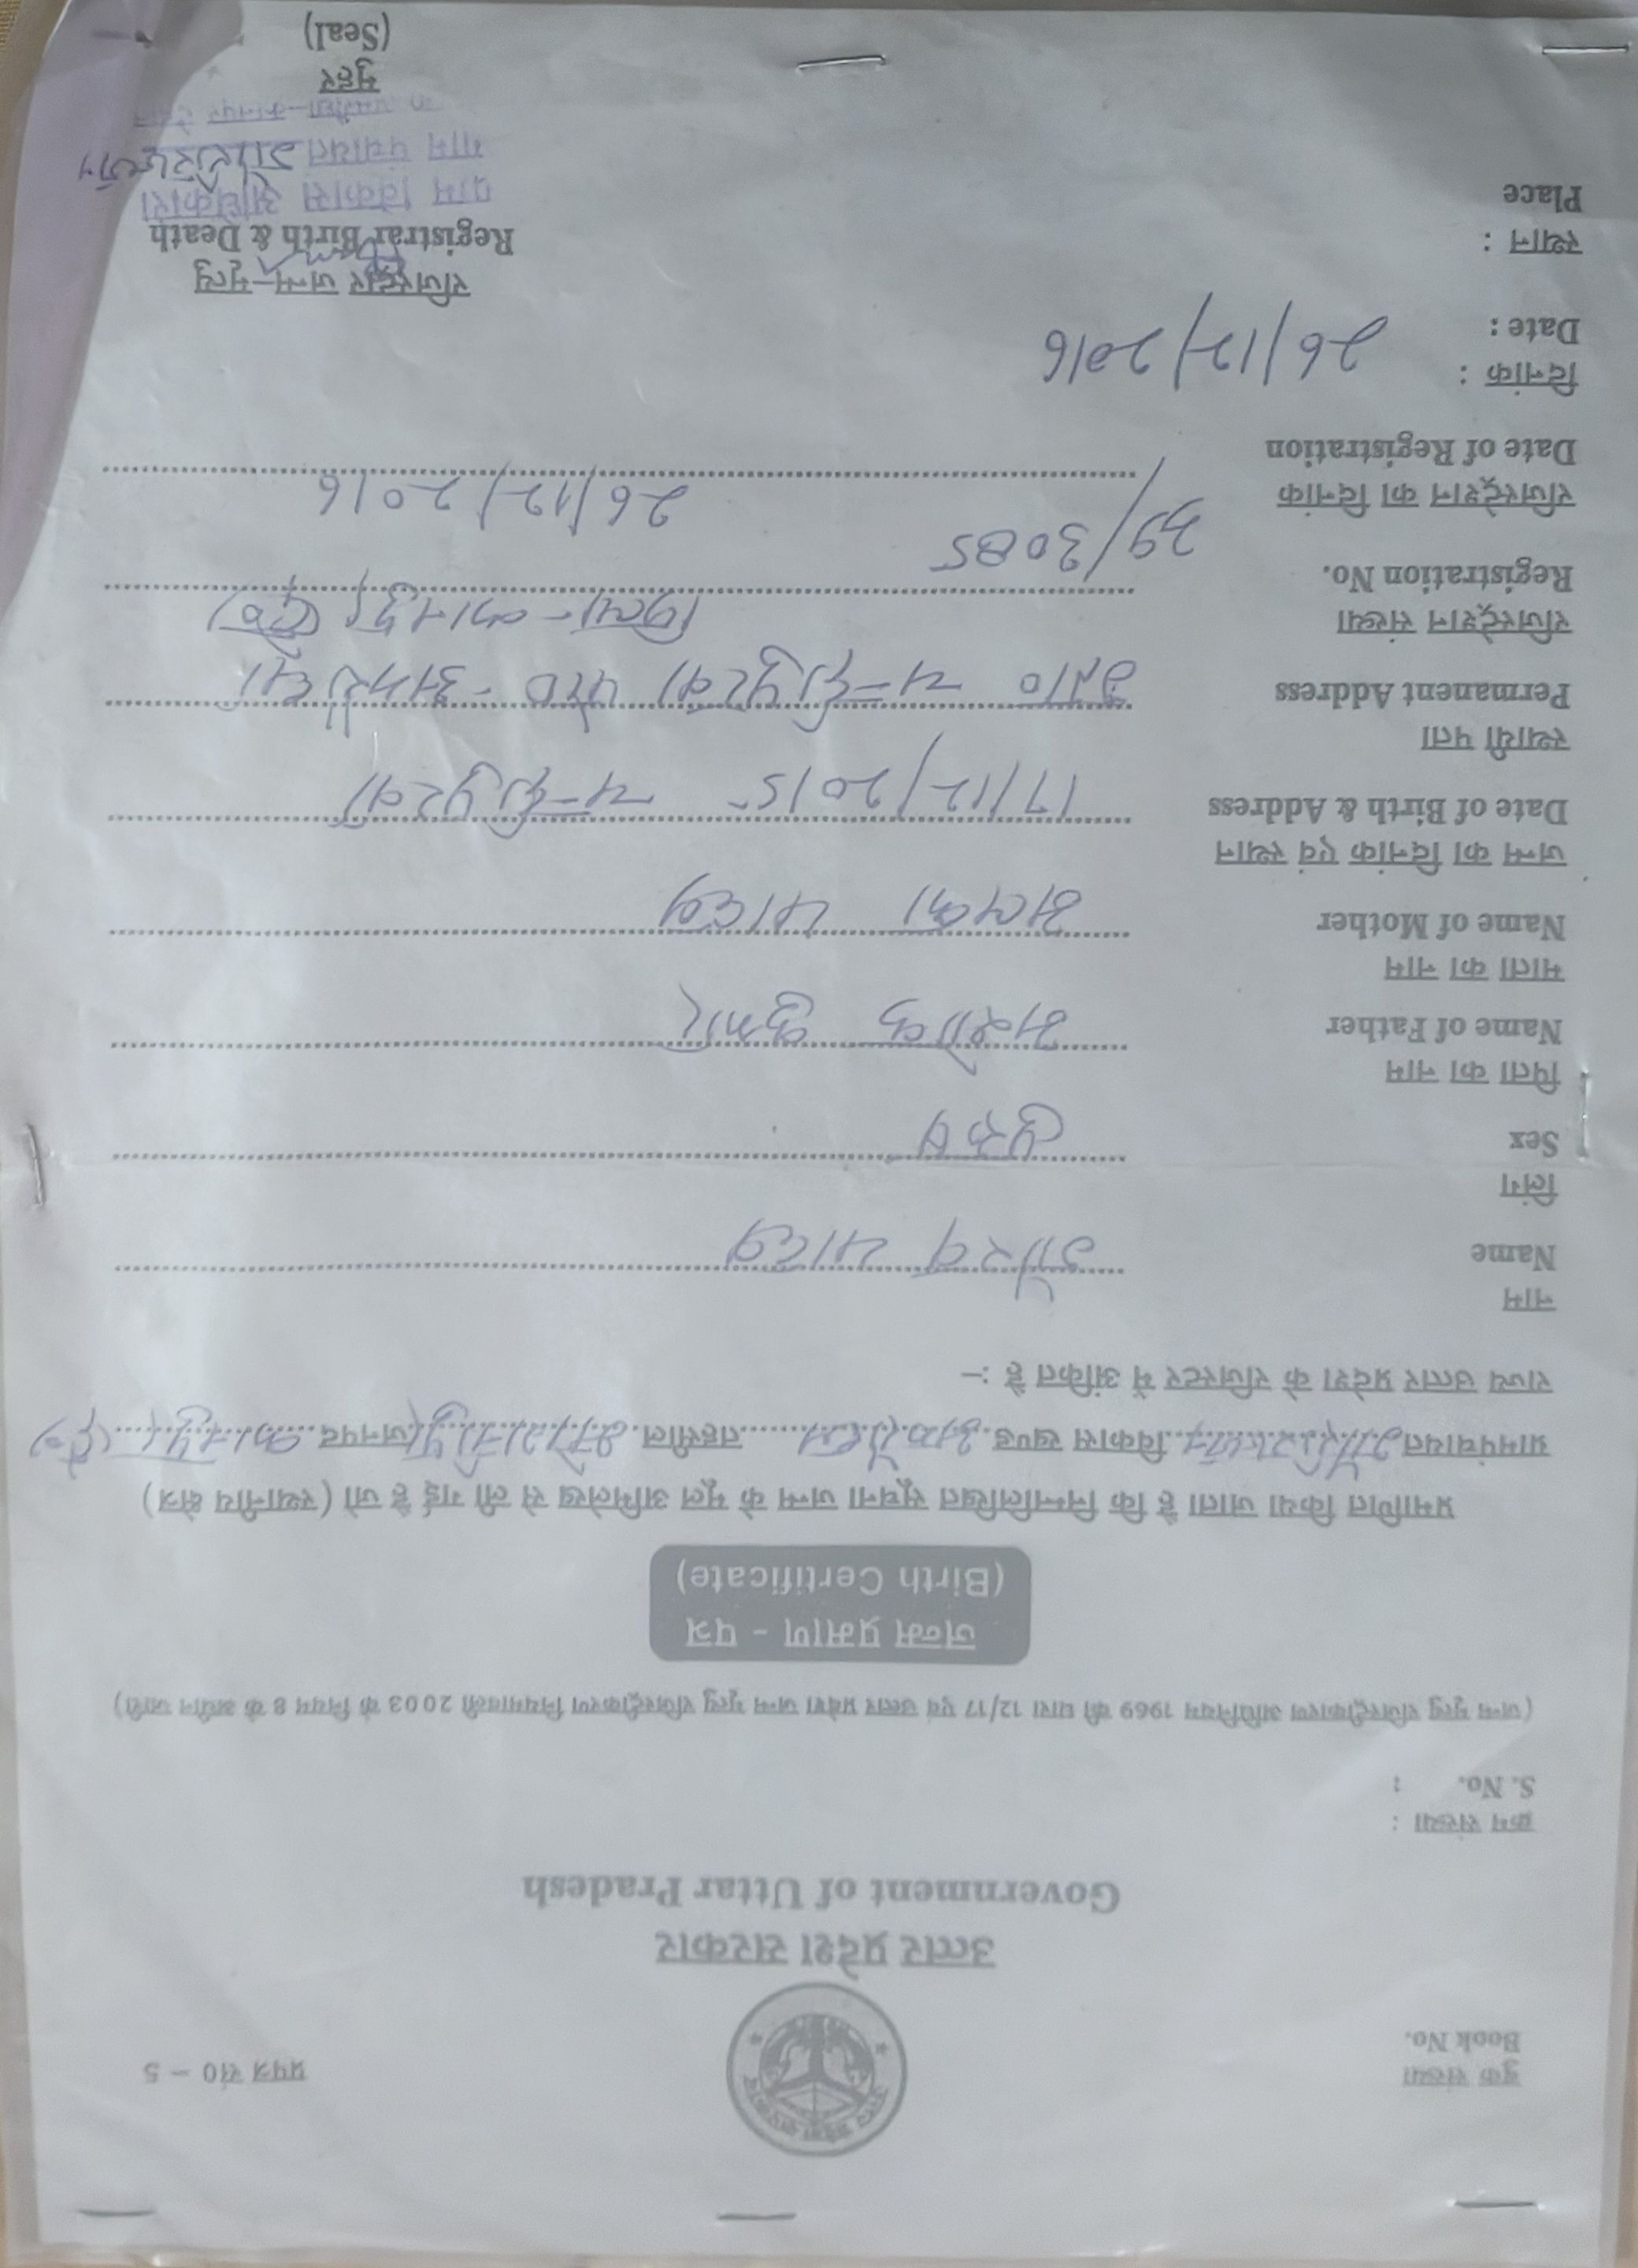 बुक संख्या
Book No.
प्रपत्र सं0 – 5
उत्तर प्रदेश सरकार
Government of Uttar Pradesh
क्रम संख्या :
S. No. :
(जन्म मृत्यु रजिस्ट्रीकरण अधिनियम 1969 की धारा 12/17 एवं उत्तर प्रदेश जन्म मृत्यु रजिस्ट्रीकरण नियमावली 2003 के नियम 8 के अधीन जारी)
जन्म प्रमाण - पत्र
(Birth Certificate)
प्रमाणित किया जाता है कि निम्नलिखित सूचना जन्म के मूल अभिलेख से ली गई है जो (स्थानीय क्षेत्र)
ग्रामपंचायत विकास खण्ड अमरौधा तहसील भोगनीपुर जनपद कानपुर (दे०)
राज्य उत्तर प्रदेश के रजिस्टर में अंकित है :–
नाम
Name गौरव यादव
लिंग
Sex पुरुष
पिता का नाम
Name of Father अशोक कुमार
माता का नाम
Name of Mother अलका यादव
जन्म का दिनांक एवं स्थान
Date of Birth & Address 17/12/2015 चन्दपुरवा
स्थायी पता
Permanent Address ग्रा० चन्दपुरवा पो० - अमरौधा
जिला - कानपुर (दे०)
रजिस्ट्रेशन संख्या
Registration No. 39/3085
रजिस्ट्रेशन का दिनांक 26/12/2016
Date of Registration
दिनांक :
Date : 26/12/2016
रजिस्ट्रार जन्म–मृत्यु
Registrar Birth & Death
स्थान :
Place
ग्राम विकास अधिकारी
ग्राम पंचायत
मुहर
(Seal)